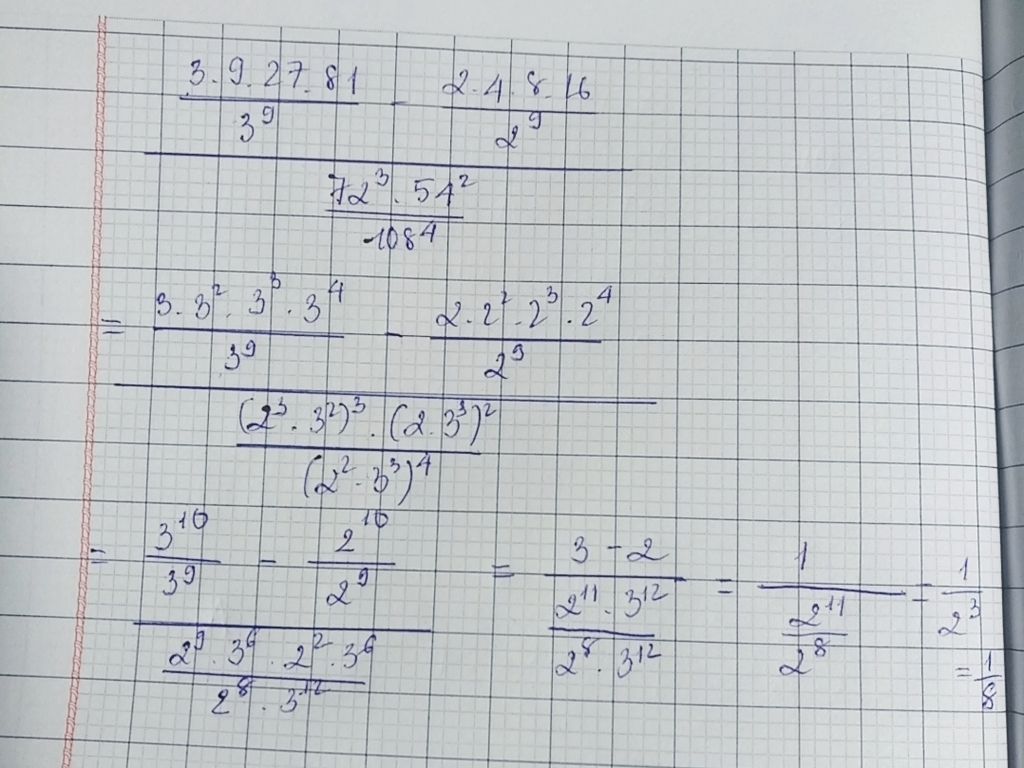 3 . 9 . 27 . 81 - 2 . 4 . 8 . 16
3^9 2^9
72^3 . 54^2
108^4
= 3 . 3^2 . 3^3 . 3^4 - 2 . 2^2 . 2^3 . 2^4
3^9 2^9
(2^3 . 3^2)^3 . (2 . 3^3)^2
(2^2 . 3^3)^4
= 3^10 - 2^10 = 3 - 2 = 1 = 1
3^9 2^9 2^11 . 3^12 2^11 2^3
2^9 . 3^6 . 2^2 . 3^6 2^8 . 3^12 2^8 = 1
2^8 . 3^12 8